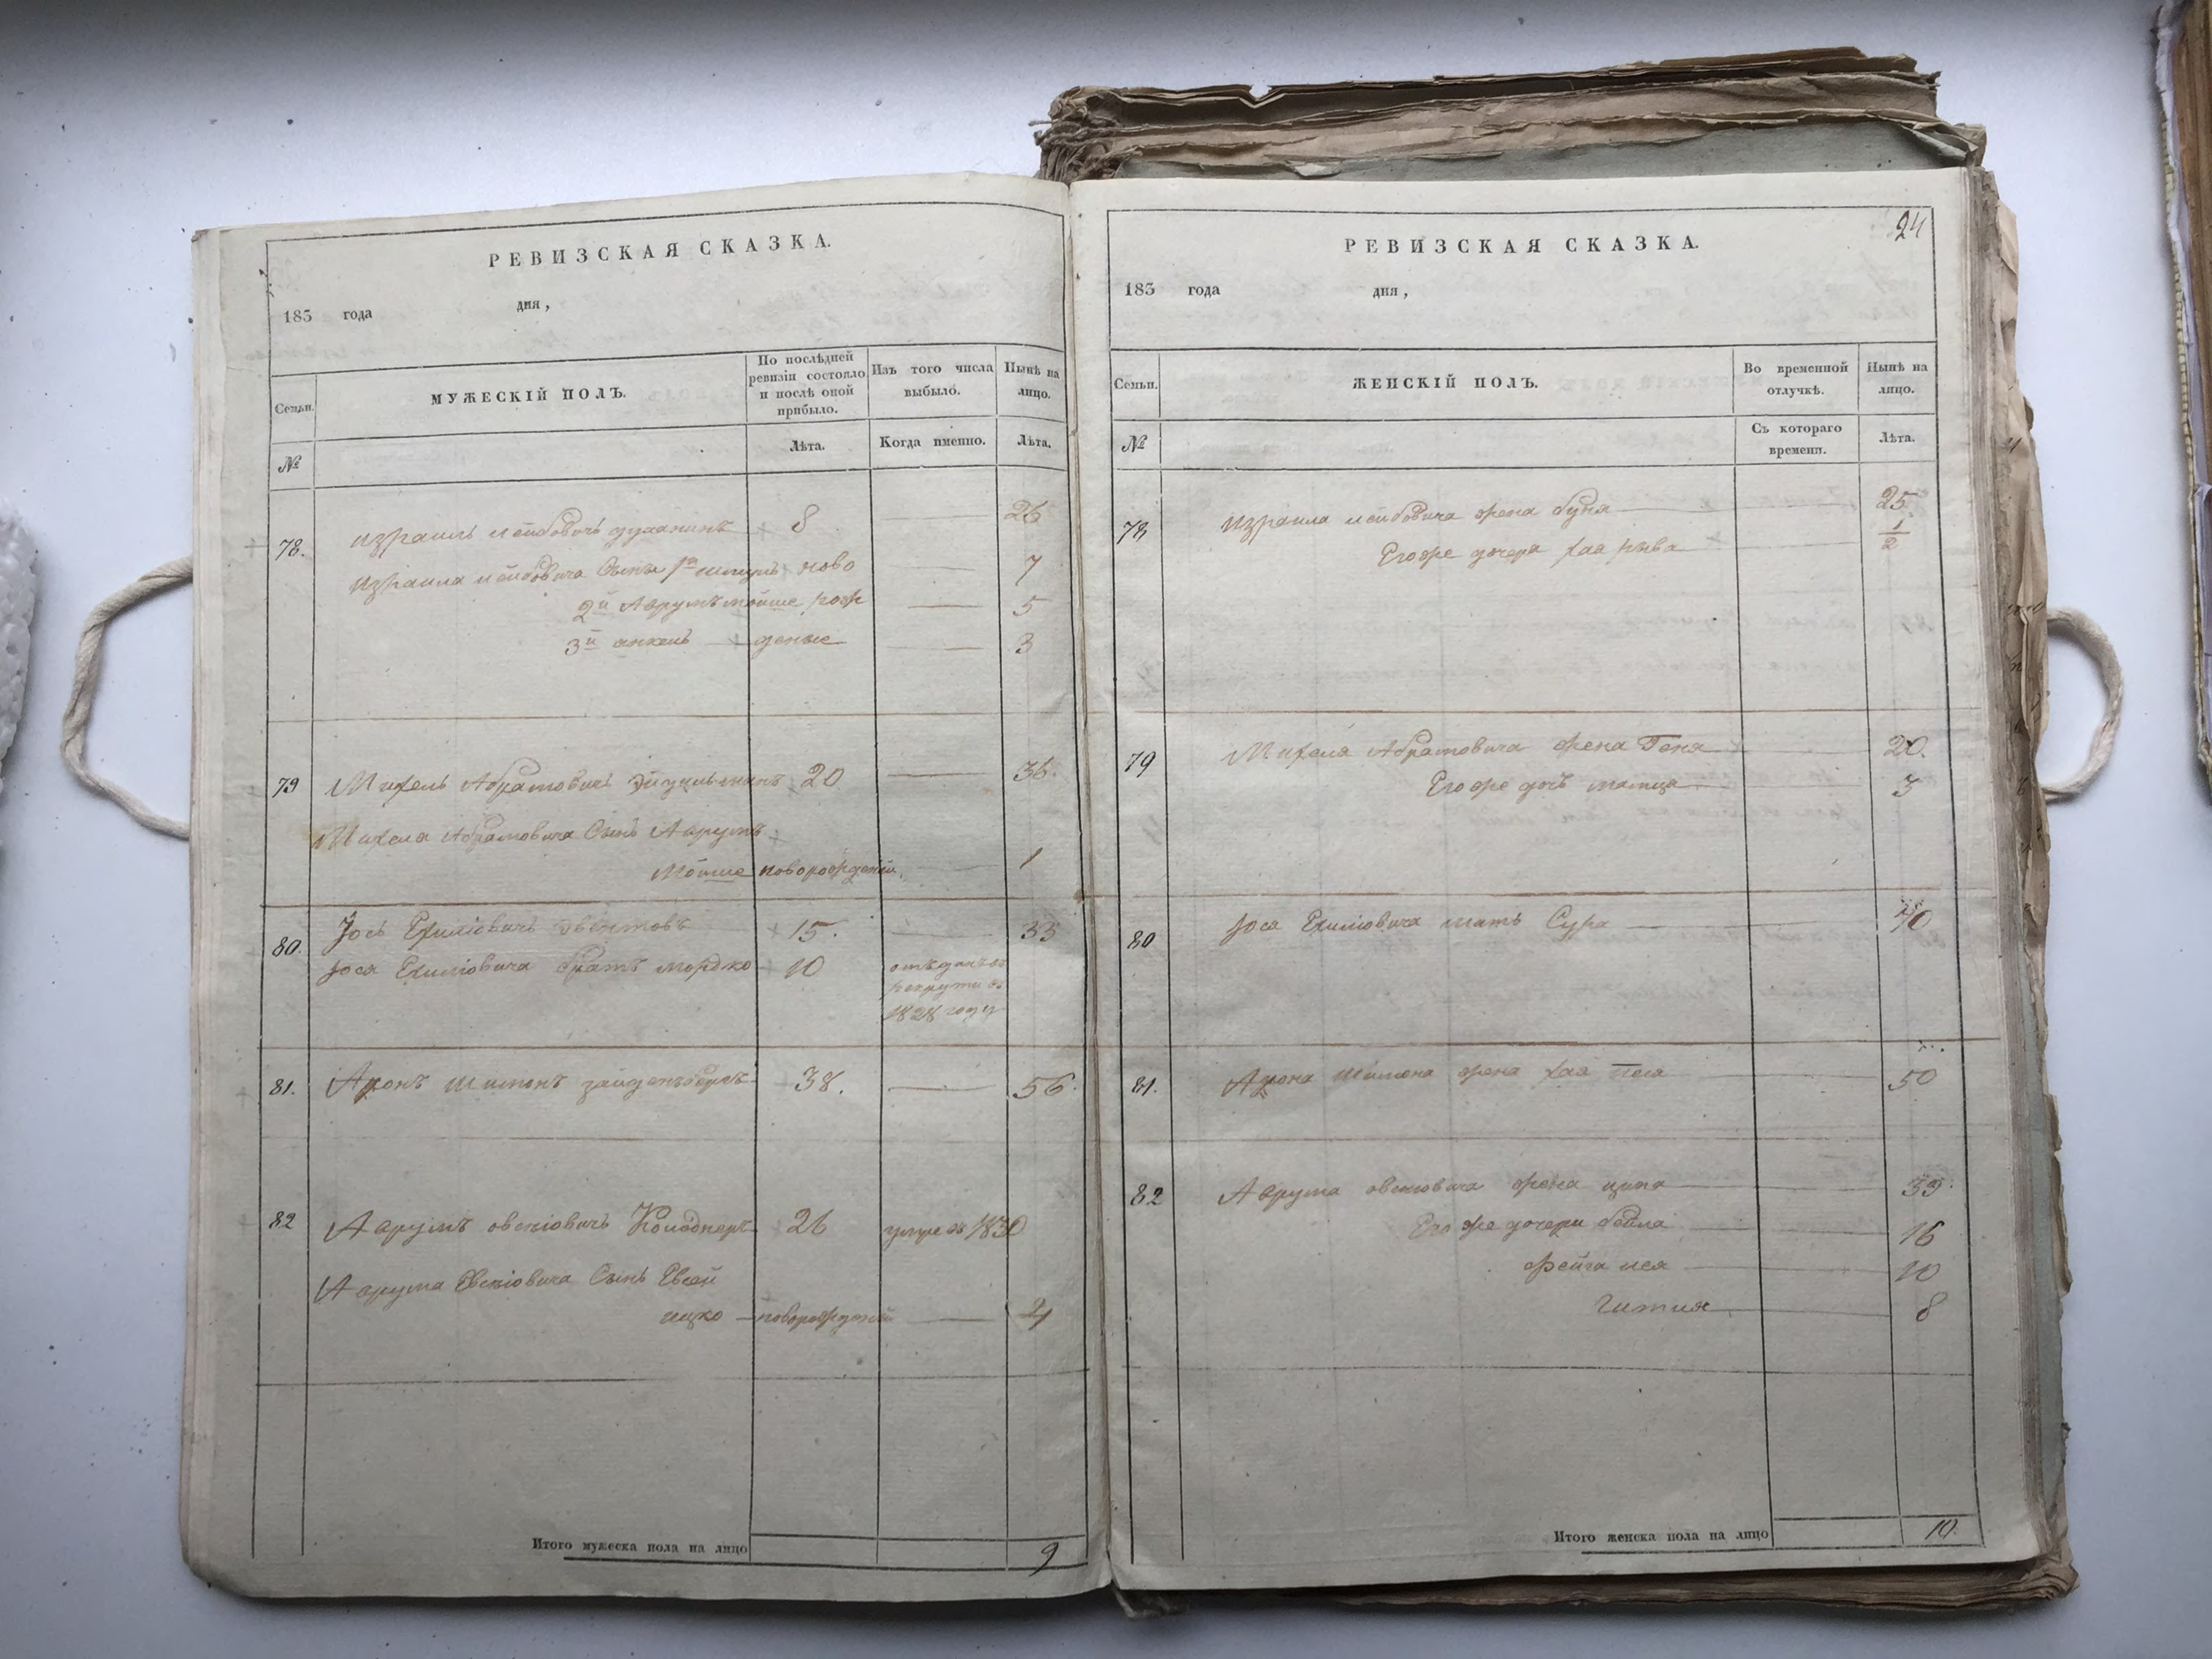 РЕВИЗСКАЯ СКАЗКА.
183 года дня,
Семьи.
МУЖЕСКІЙ ПОЛЪ.
По послѣдней ревизіи состояло и послѣ оной прибыло.
Изъ того числа выбыло.
Нынѣ на лицо.
№
Лѣта.
Когда именно.
Лѣта.
78. Израиль Лейбовичъ 8 — 26
Израиля Лейбовича Сынъ 1й ново — 7
2й Аврумъ мойше рож — 5
3й — деные — 3
79 Михель Абрамовичъ 20 — 36.
Михеля Абрамовича Сынъ Аврумъ
Мойше новорожденый — 1
80. Іось Ехиліовичъ 15. — 33
Іося Ехиліовича братъ мордко 10 отъданъ въ
рекруты въ
1828 году
81. Аронъ Шимонъ зайденъбергъ 38. — 56.
82 Аврумъ овсѣіовичъ 26 умре въ 1830
Аврума Евсѣіовича Сынъ Евсей
ицко — новорожденый — 4
Итого мужеска пола на лицо 9
24
РЕВИЗСКАЯ СКАЗКА.
183 года дня,
Семьи.
ЖЕНСКІЙ ПОЛЪ.
Во временной отлучкѣ.
Нынѣ на лицо.
№
Съ котораго времени.
Лѣта.
78 Израиля Лейбовича жена буня — 25.
Егоже дочера хая рыва — 1/2
79 Михеля Абрамовича жена Геня — 20.
Егоже дочъ — 3
80 Іося Ехиліовича мать Сура — 70
81. Арона Шимона жена хая песя — 50
82 Аврума овсѣіовича жена ципа — 39.
Егоже дочери бейла — 16
фейга лея — 10
Гитля — 8
Итого женска пола на лицо 10.